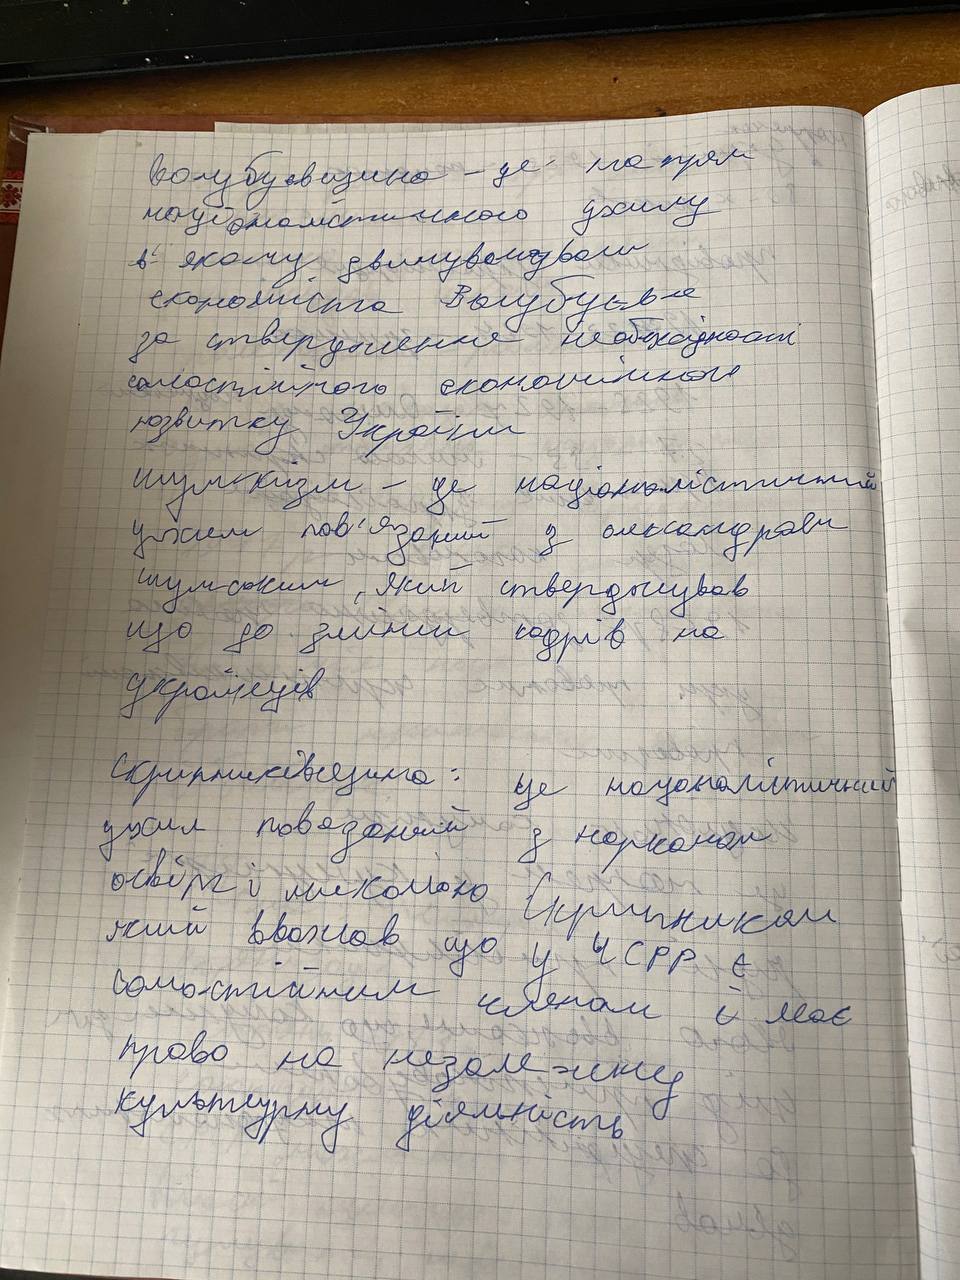 Волубуєвщина - це напрям
націоналістичного ухилу
в якому звинувачували
економіста Волубуєва
за ствердження необхідності
самостійного економічного
розвитку України
шумскізм - це націоналістичний
ухил пов'язаний з олександром
шумським, який стверджував
що до зміни кадрів на
українців
скрипниківщина: це націоналістичний
ухил повязаний з наркомом
освіти і миколою Скрипником
який вважав що у УСРР є
самостійним членом і має
право на незалежну
культурну діяльність